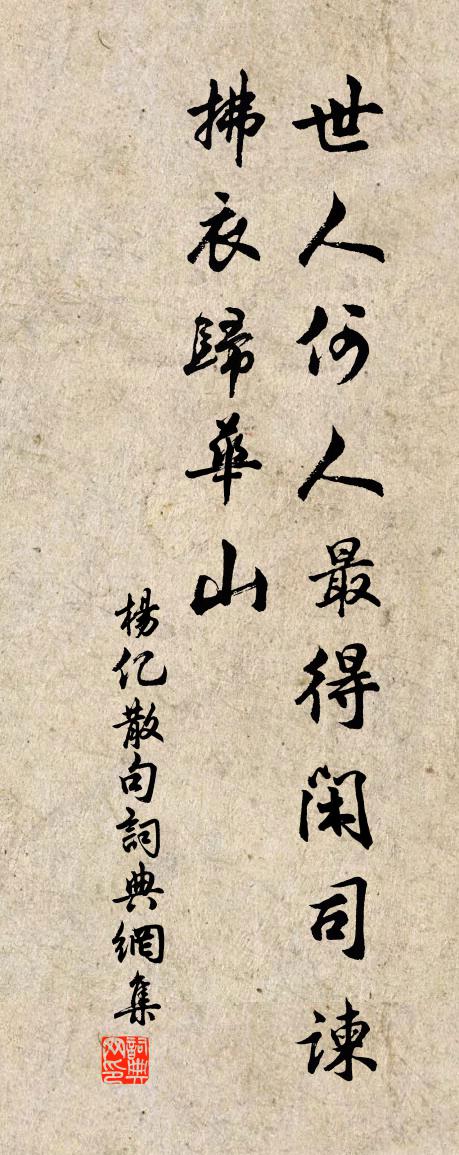 世人何人最得閑司諫
拂衣歸華山
楊亿散句詞典網集
詞典网印